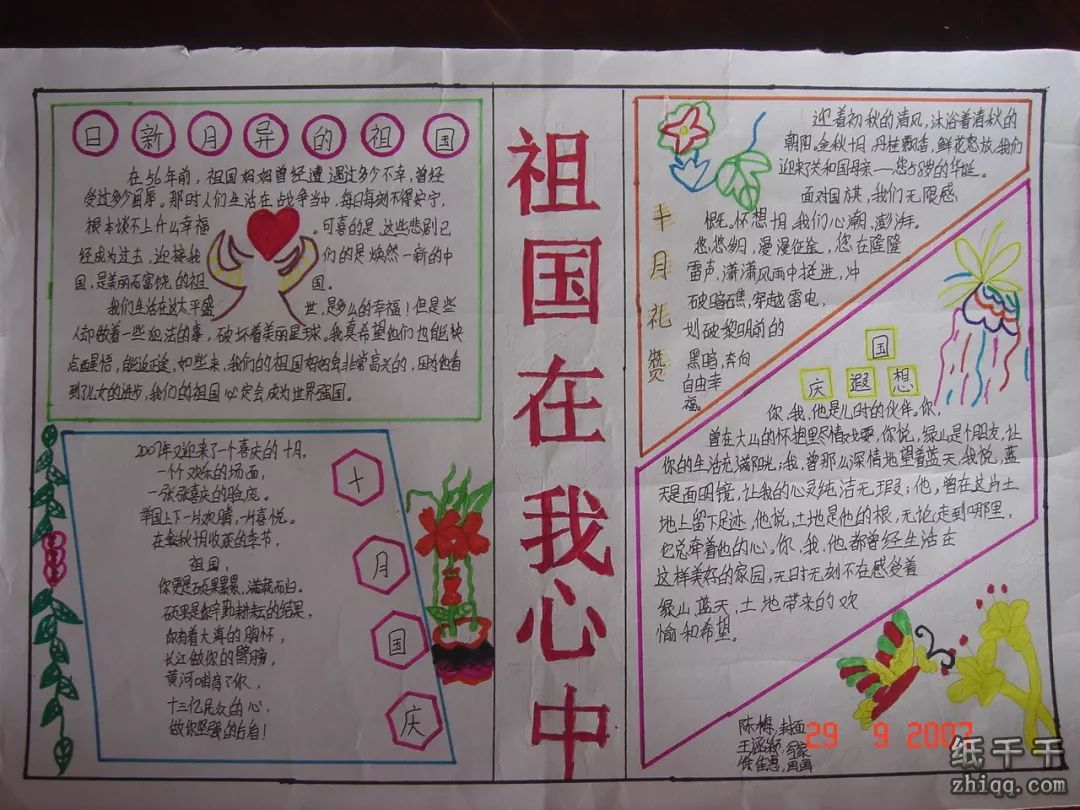 日新月异的祖国
在56年前，祖国妈妈曾经遭遇过多少不幸，曾经
受过多少屈辱。那时人们生活在战争当中，每日每刻不得安宁，
根本谈不上什么幸福。可喜的是，这些悲剧已
经成为过去，迎接我们的是焕然一新的中
国，是美丽而富饶的祖国。
我们生活在这太平盛世，是多么的幸福！但是些
人却做着一些犯法的事，破坏着美丽星球。我真希望他们也能快
点醒悟，能改正，如些来，我们的祖国妈妈会非常高兴的，因为他看
到了儿女的进步，我们的祖国必定会成为世界强国。
2007年又迎来了一个喜庆的十月。
一个个欢乐的场面，
一张张喜庆的脸庞。
举国上下一片欢腾，一片喜悦。
在金秋十月收获的季节，
祖国，
你更是硕果累累，满载而归。
硕果是你辛勤耕耘的结果，
你有着大海的胸怀，
长江做你的臂膀，
黄河哺育了你，
十三亿民众的心，
做你坚强的后盾！
十月国庆
祖国在我心中
十月礼赞
迎着初秋的清风，沐浴着清秋的
朝阳。金秋十月，丹桂飘香，鲜花怒放，我们
迎来了共和国母亲——您58岁的华诞。
面对国旗，我们无限感
慨。怀想十月，我们心潮澎湃。
悠悠岁月，漫漫征途，您在隆隆
雷声，潇潇风雨中挺进，冲
破暗礁，穿越雷电，
划破黎明前的
黑暗，奔向
自由幸
福。
国
庆遐想
你，我，他是儿时的伙伴。你，
曾在大山的怀抱里尽情戏耍，你说，绿山是个朋友，让
你的生活充满阳光；我，曾那么深情地望着蓝天，我说，蓝
天是面明镜，让我的心灵纯洁无瑕；他，曾在这片土
地上留下足迹，他说，土地是他的根，无论走到哪里，
它总牵着他的心。你，我，他都曾经生活在
这样美好的家园，无时无刻不在感受着
绿山蓝天，土地带来的欢
愉和希望。
陈梅，封面
29 9 2007
纸千千
zhiqq.com